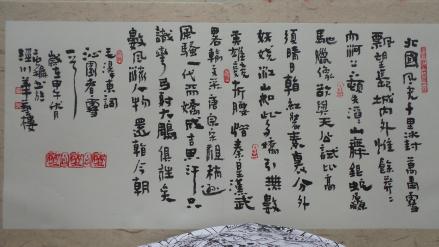 北國風光千里冰封萬里雪
飄望長城內外惟餘莽〻
大河上下頓失滔〻山舞銀蛇原
馳臘象欲與天公試比高
須晴日看紅裝素裹分外
妖嬈江山如此多嬌引無數
英雄競折腰惜秦皇漢武
略輸文采唐宗宋祖稍遜
風騷一代天驕成吉思汗只
識彎弓射大鵰俱往矣
數風流人物還看今朝
毛澤東詞
沁園春雪
歲在甲午